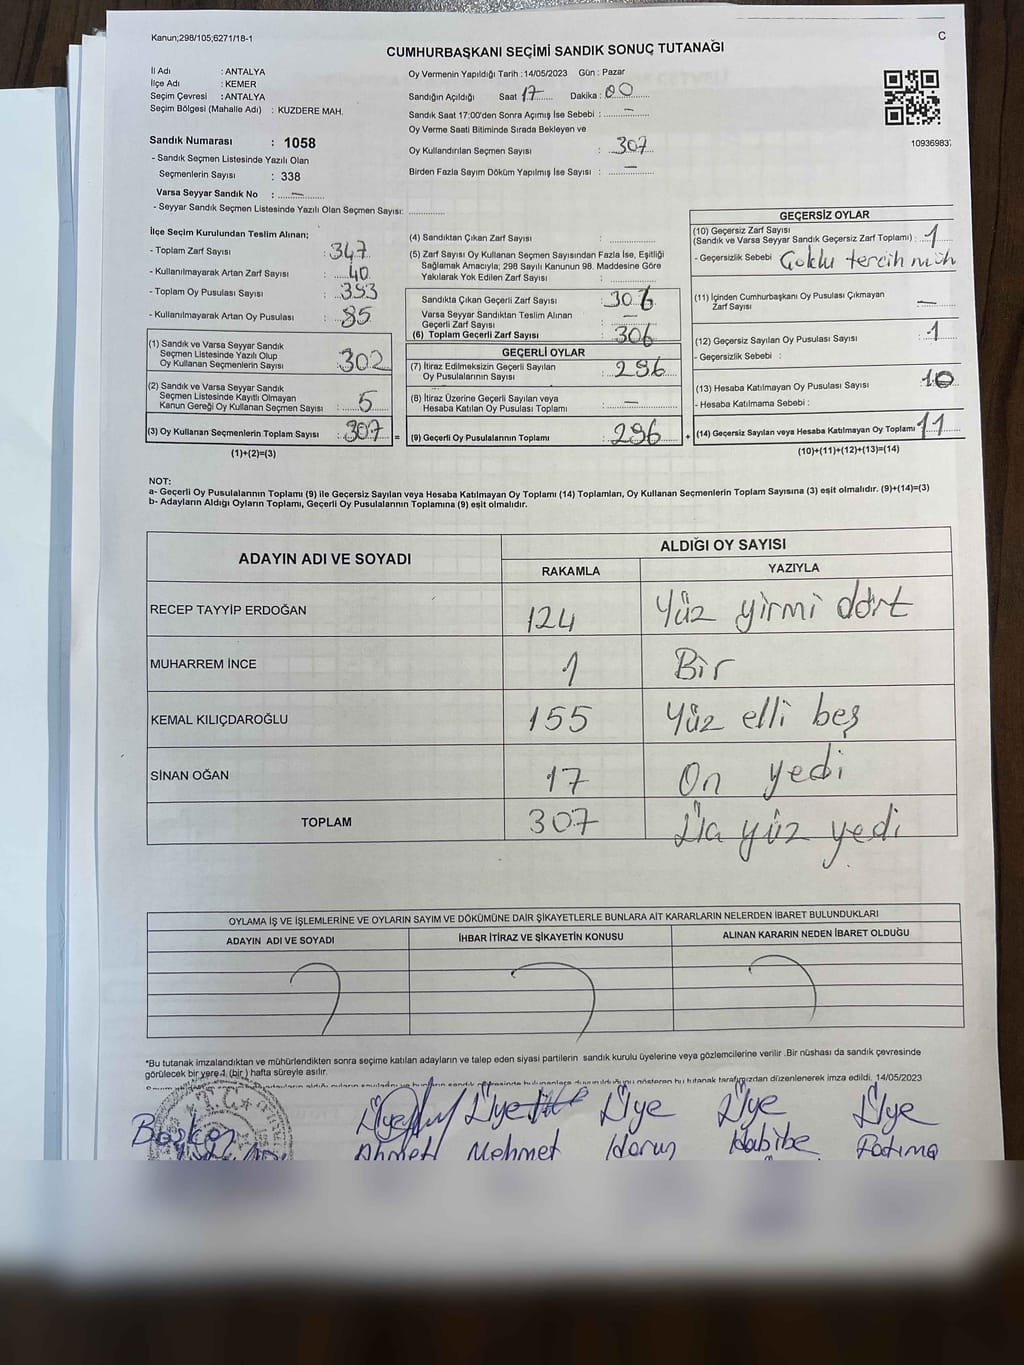 Kanun;298/105;6271/18-1
C
CUMHURBAŞKANI SEÇİMİ SANDIK SONUÇ TUTANAĞI
İl Adı : ANTALYA
İlçe Adı : KEMER
Seçim Çevresi : ANTALYA
Seçim Bölgesi (Mahalle Adı) : KUZDERE MAH.
Sandık Numarası : 1058
- Sandık Seçmen Listesinde Yazılı Olan
Seçmenlerin Sayısı : 338
Varsa Seyyar Sandık No : —
- Seyyar Sandık Seçmen Listesinde Yazılı Olan Seçmen Sayısı:
Oy Vermenin Yapıldığı Tarih : 14/05/2023 Gün : Pazar
Sandığın Açıldığı Saat 17 Dakika : 00
Sandık Saat 17:00'den Sonra Açımış İse Sebebi : —
Oy Verme Saati Bitiminde Sırada Bekleyen ve
Oy Kullandırılan Seçmen Sayısı : 307
Birden Fazla Sayım Döküm Yapılmış İse Sayısı : —
10936983
İlçe Seçim Kurulundan Teslim Alınan;
- Toplam Zarf Sayısı : 347
- Kullanılmayarak Artan Zarf Sayısı : 40
- Toplam Oy Pusulası Sayısı : 393
- Kullanılmayarak Artan Oy Pusulası : 85
(1) Sandık ve Varsa Seyyar Sandık
Seçmen Listesinde Yazılı Olup
Oy Kullanan Seçmenlerin Sayısı : 302
(2) Sandık ve Varsa Seyyar Sandık
Seçmen Listesinde Kayıtlı Olmayan
Kanun Gereği Oy Kullanan Seçmen Sayısı : 5
(3) Oy Kullanan Seçmenlerin Toplam Sayısı : 307 =
(1)+(2)=(3)
(4) Sandıktan Çıkan Zarf Sayısı :
(5) Zarf Sayısı Oy Kullanan Seçmen Sayısından Fazla İse, Eşitliği
Sağlamak Amacıyla; 298 Sayılı Kanunun 98. Maddesine Göre
Yakılarak Yok Edilen Zarf Sayısı :
Sandıkta Çıkan Geçerli Zarf Sayısı : 306
Varsa Seyyar Sandıktan Teslim Alınan
Geçerli Zarf Sayısı : —
(6) Toplam Geçerli Zarf Sayısı : 306
GEÇERLİ OYLAR
(7) İtiraz Edilmeksizin Geçerli Sayılan
Oy Pusulalarının Sayısı : 296
(8) İtiraz Üzerine Geçerli Sayılan veya
Hesaba Katılan Oy Pusulası Toplamı : —
(9) Geçerli Oy Pusulalarının Toplamı : 296 +
GEÇERSİZ OYLAR
(10) Geçersiz Zarf Sayısı
(Sandık ve Varsa Seyyar Sandık Geçersiz Zarf Toplamı) : 1
- Geçersizlik Sebebi Çoklu tercih müh
(11) İçinden Cumhurbaşkanı Oy Pusulası Çıkmayan
Zarf Sayısı : —
(12) Geçersiz Sayılan Oy Pusulası Sayısı : 1
- Geçersizlik Sebebi :
(13) Hesaba Katılmayan Oy Pusulası Sayısı 10
- Hesaba Katılmama Sebebi :
(14) Geçersiz Sayılan veya Hesaba Katılmayan Oy Toplamı 11
(10)+(11)+(12)+(13)=(14)
NOT:
a- Geçerli Oy Pusulalarının Toplamı (9) ile Geçersiz Sayılan veya Hesaba Katılmayan Oy Toplamı (14) Toplamları, Oy Kullanan Seçmenlerin Toplam Sayısına (3) eşit olmalıdır. (9)+(14)=(3)
b- Adayların Aldığı Oyların Toplamı, Geçerli Oy Pusulalarının Toplamına (9) eşit olmalıdır.
ADAYIN ADI VE SOYADI ALDIĞI OY SAYISI
RAKAMLA YAZIYLA
RECEP TAYYİP ERDOĞAN 124 Yüz yirmi dört
MUHARREM İNCE 1 Bir
KEMAL KILIÇDAROĞLU 155 Yüz elli beş
SİNAN OĞAN 17 On yedi
TOPLAM 307 yüz yedi
OYLAMA İŞ VE İŞLEMLERİNE VE OYLARIN SAYIM VE DÖKÜMÜNE DAİR ŞİKAYETLERLE BUNLARA AİT KARARLARIN NELERDEN İBARET BULUNDUKLARI
ADAYIN ADI VE SOYADI İHBAR İTİRAZ VE ŞİKAYETİN KONUSU ALINAN KARARIN NEDEN İBARET OLDUĞU
*Bu tutanak imzalandıktan ve mühürlendikten sonra seçime katılan adayların ve talep eden siyasi partilerin sandık kurulu üyelerine veya gözlemcilerine verilir .Bir nüshası da sandık çevresinde
görülecek bir yere 1 (bir ) hafta süreyle asılır.
bu tutanak tarafımızdan düzenlenerek imza edildi. 14/05/2023
T.C.
Başkan Üye Üye Üye Üye Üye
Ahmet Mehmet Harun Habibe Fatma